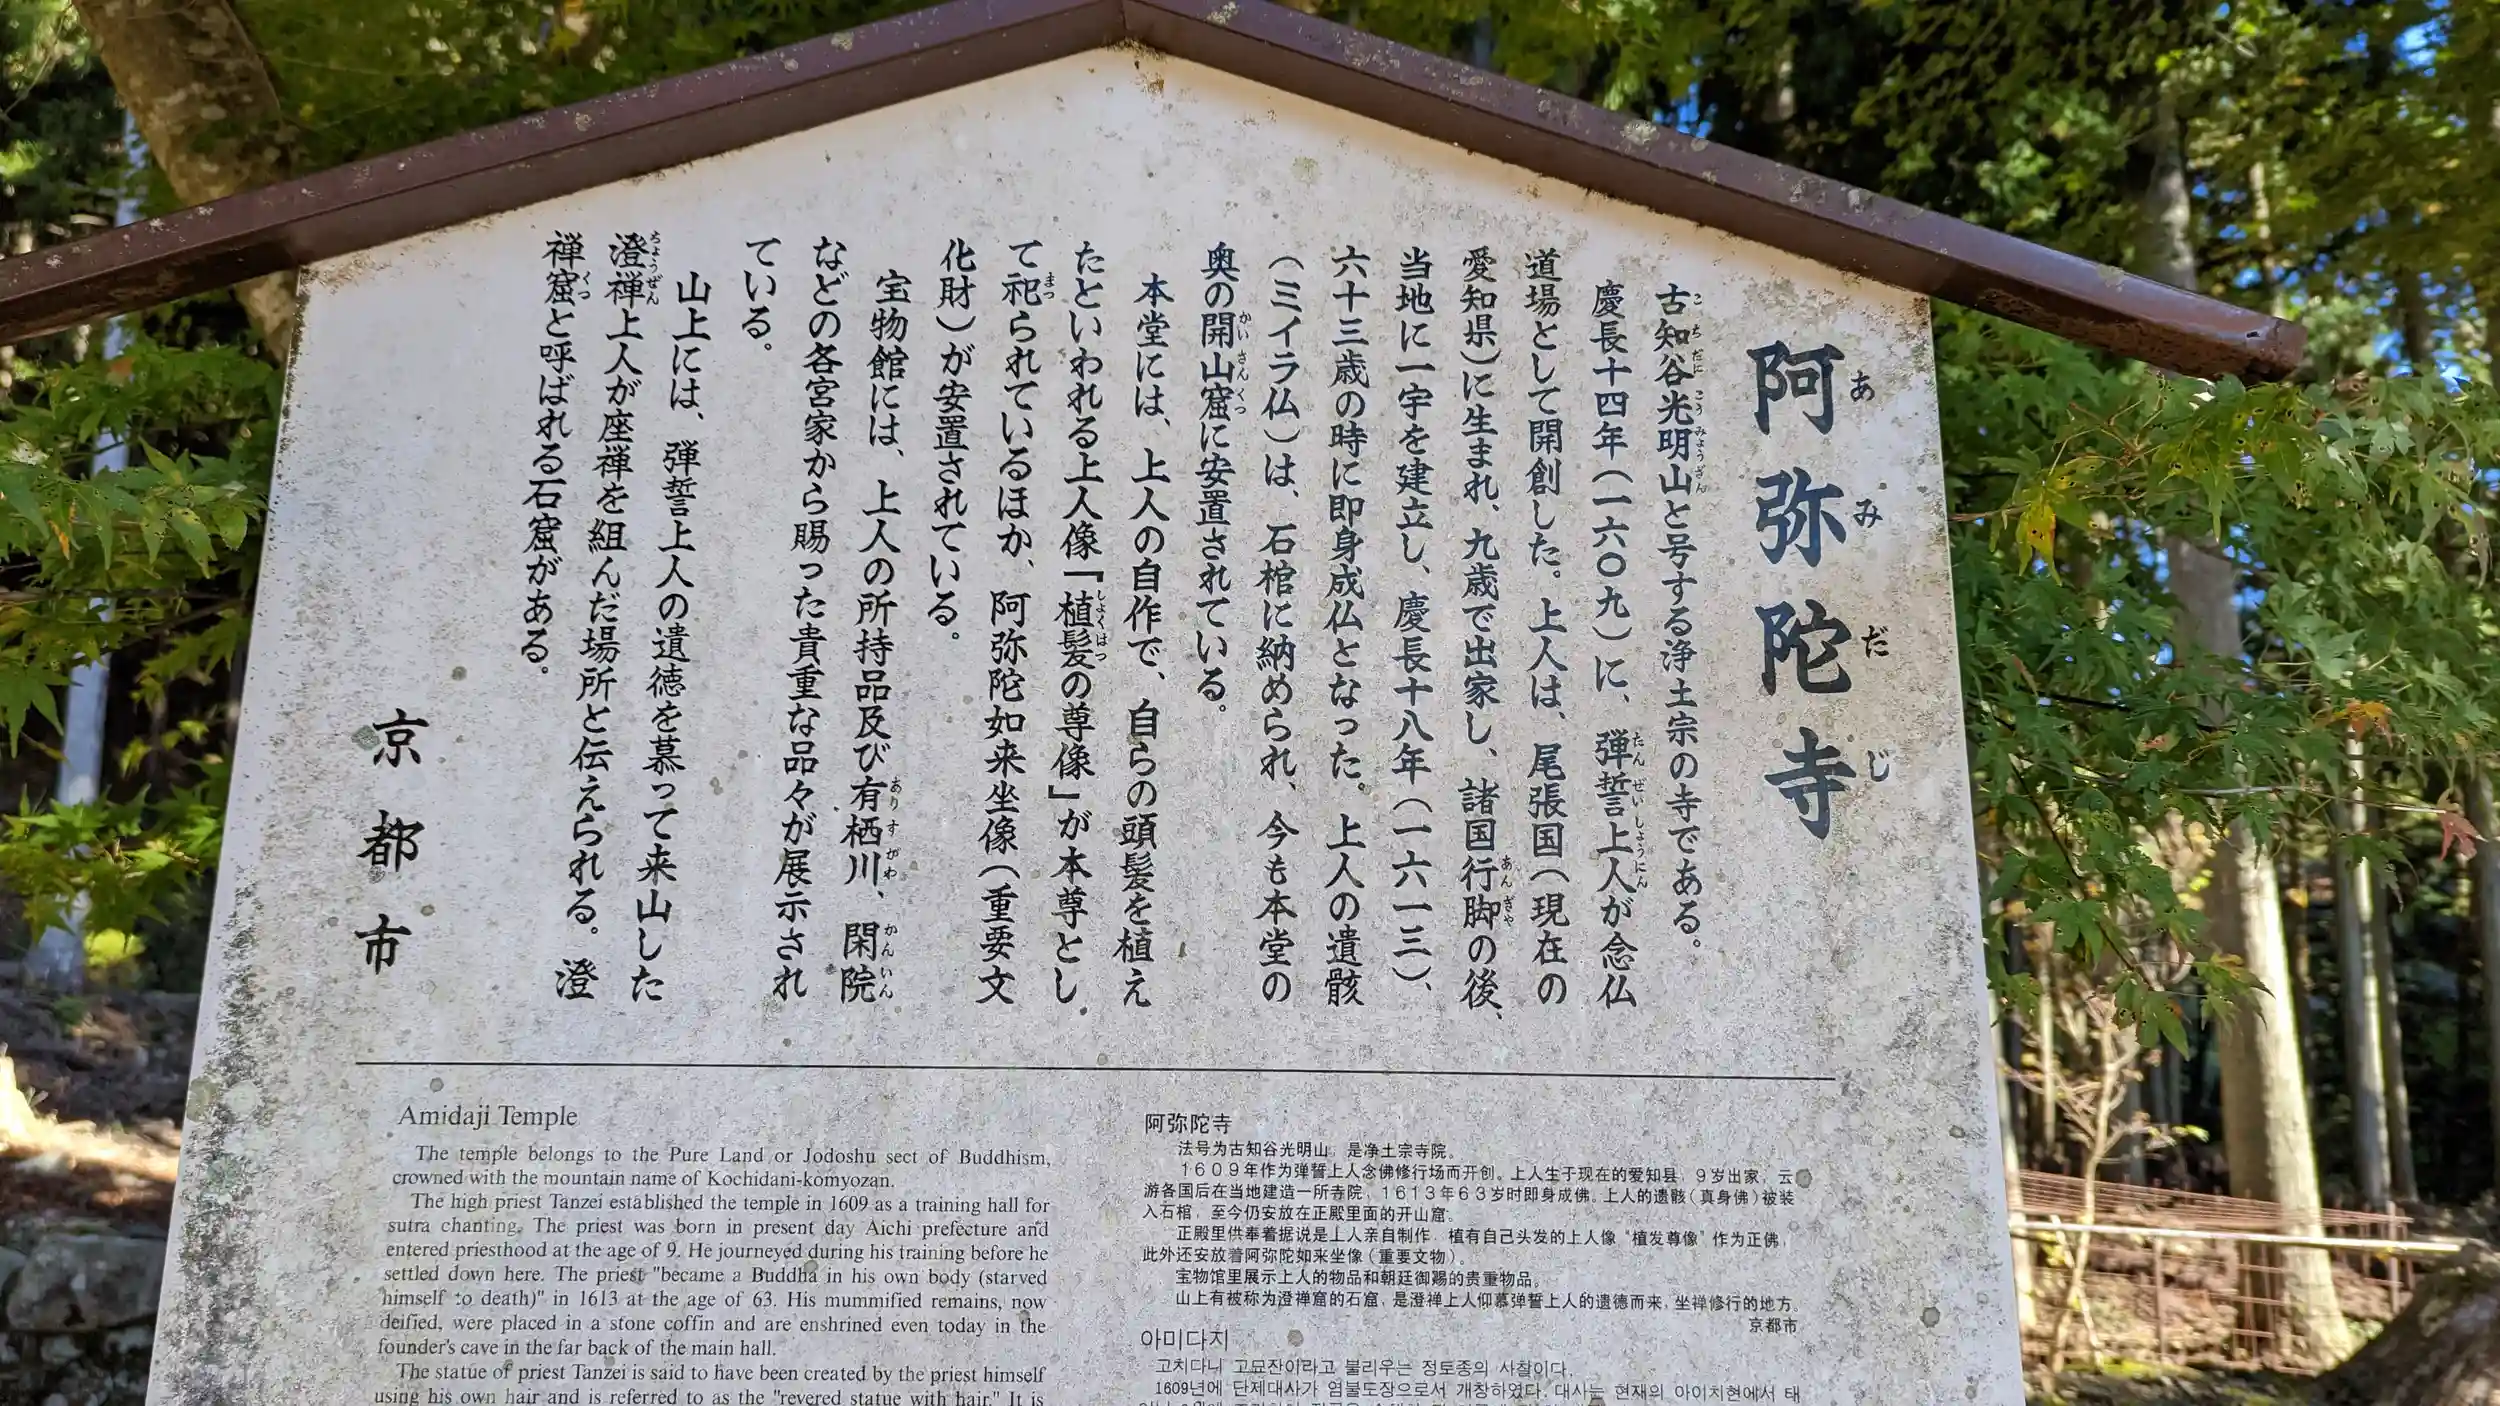 阿弥陀寺
あみだじ
古知谷光明山と号する浄土宗の寺である。
慶長十四年(一六〇九)に、弾誓上人が念仏
道場として開創した。上人は、尾張国(現在の
愛知県)に生まれ、九歳で出家し、諸国行脚の後、
当地に一宇を建立し、慶長十八年(一六一三)、
六十三歳の時に即身成仏となった。上人の遺骸
(ミイラ仏)は、石棺に納められ、今も本堂の
奥の開山窟に安置されている。
本堂には、上人の自作で、自らの頭髪を植え
たといわれる上人像「植髪の尊像」が本尊とし
て祀られているほか、阿弥陀如来坐像(重要文
化財)が安置されている。
宝物館には、上人の所持品及び有栖川、閑院
などの各宮家から賜った貴重な品々が展示され
ている。
山上には、弾誓上人の遺徳を慕って来山した
澄禅上人が座禅を組んだ場所と伝えられる。澄
禅窟と呼ばれる石窟がある。
京都市
Amidaji Temple
The temple belongs to the Pure Land or Jodoshu sect of Buddhism,
crowned with the mountain name of Kochidani-komyozan.
The high priest Tanzei established the temple in 1609 as a training hall for
sutra chanting. The priest was born in present day Aichi prefecture and
entered priesthood at the age of 9. He journeyed during his training before he
settled down here. The priest "became a Buddha in his own body (starved
himself to death)" in 1613 at the age of 63. His mummified remains, now
deified, were placed in a stone coffin and are enshrined even today in the
founder's cave in the far back of the main hall.
The statue of priest Tanzei is said to have been created by the priest himself
using his own hair and is referred to as the "revered statue with hair." It is
阿弥陀寺
法号为古知谷光明山，是净土宗寺院。
1609年作为弹誓上人念佛修行场而开创。上人生于现在的爱知县，9岁出家，云
游各国后在当地建造一所寺院，1613年63岁时即身成佛。上人的遗骸(真身佛)被装
入石棺，至今仍安放在正殿里面的开山窟。
正殿里供奉着据说是上人亲自制作，植有自己头发的上人像“植发尊像”作为正佛，
此外还安放着阿弥陀如来坐像(重要文物)。
宝物馆里展示上人的物品和朝廷御赐的贵重物品。
山上有被称为澄禅窟的石窟，是澄禅上人仰慕弹誓上人的遗德而来，坐禅修行的地方。
京都市
아미다지
고치다니 고묘잔이라고 불리우는 정토종의 사찰이다.
1609년에 단제대사가 염불도장으로서 개창하였다. 대사는 현재의 아이치현에서 태